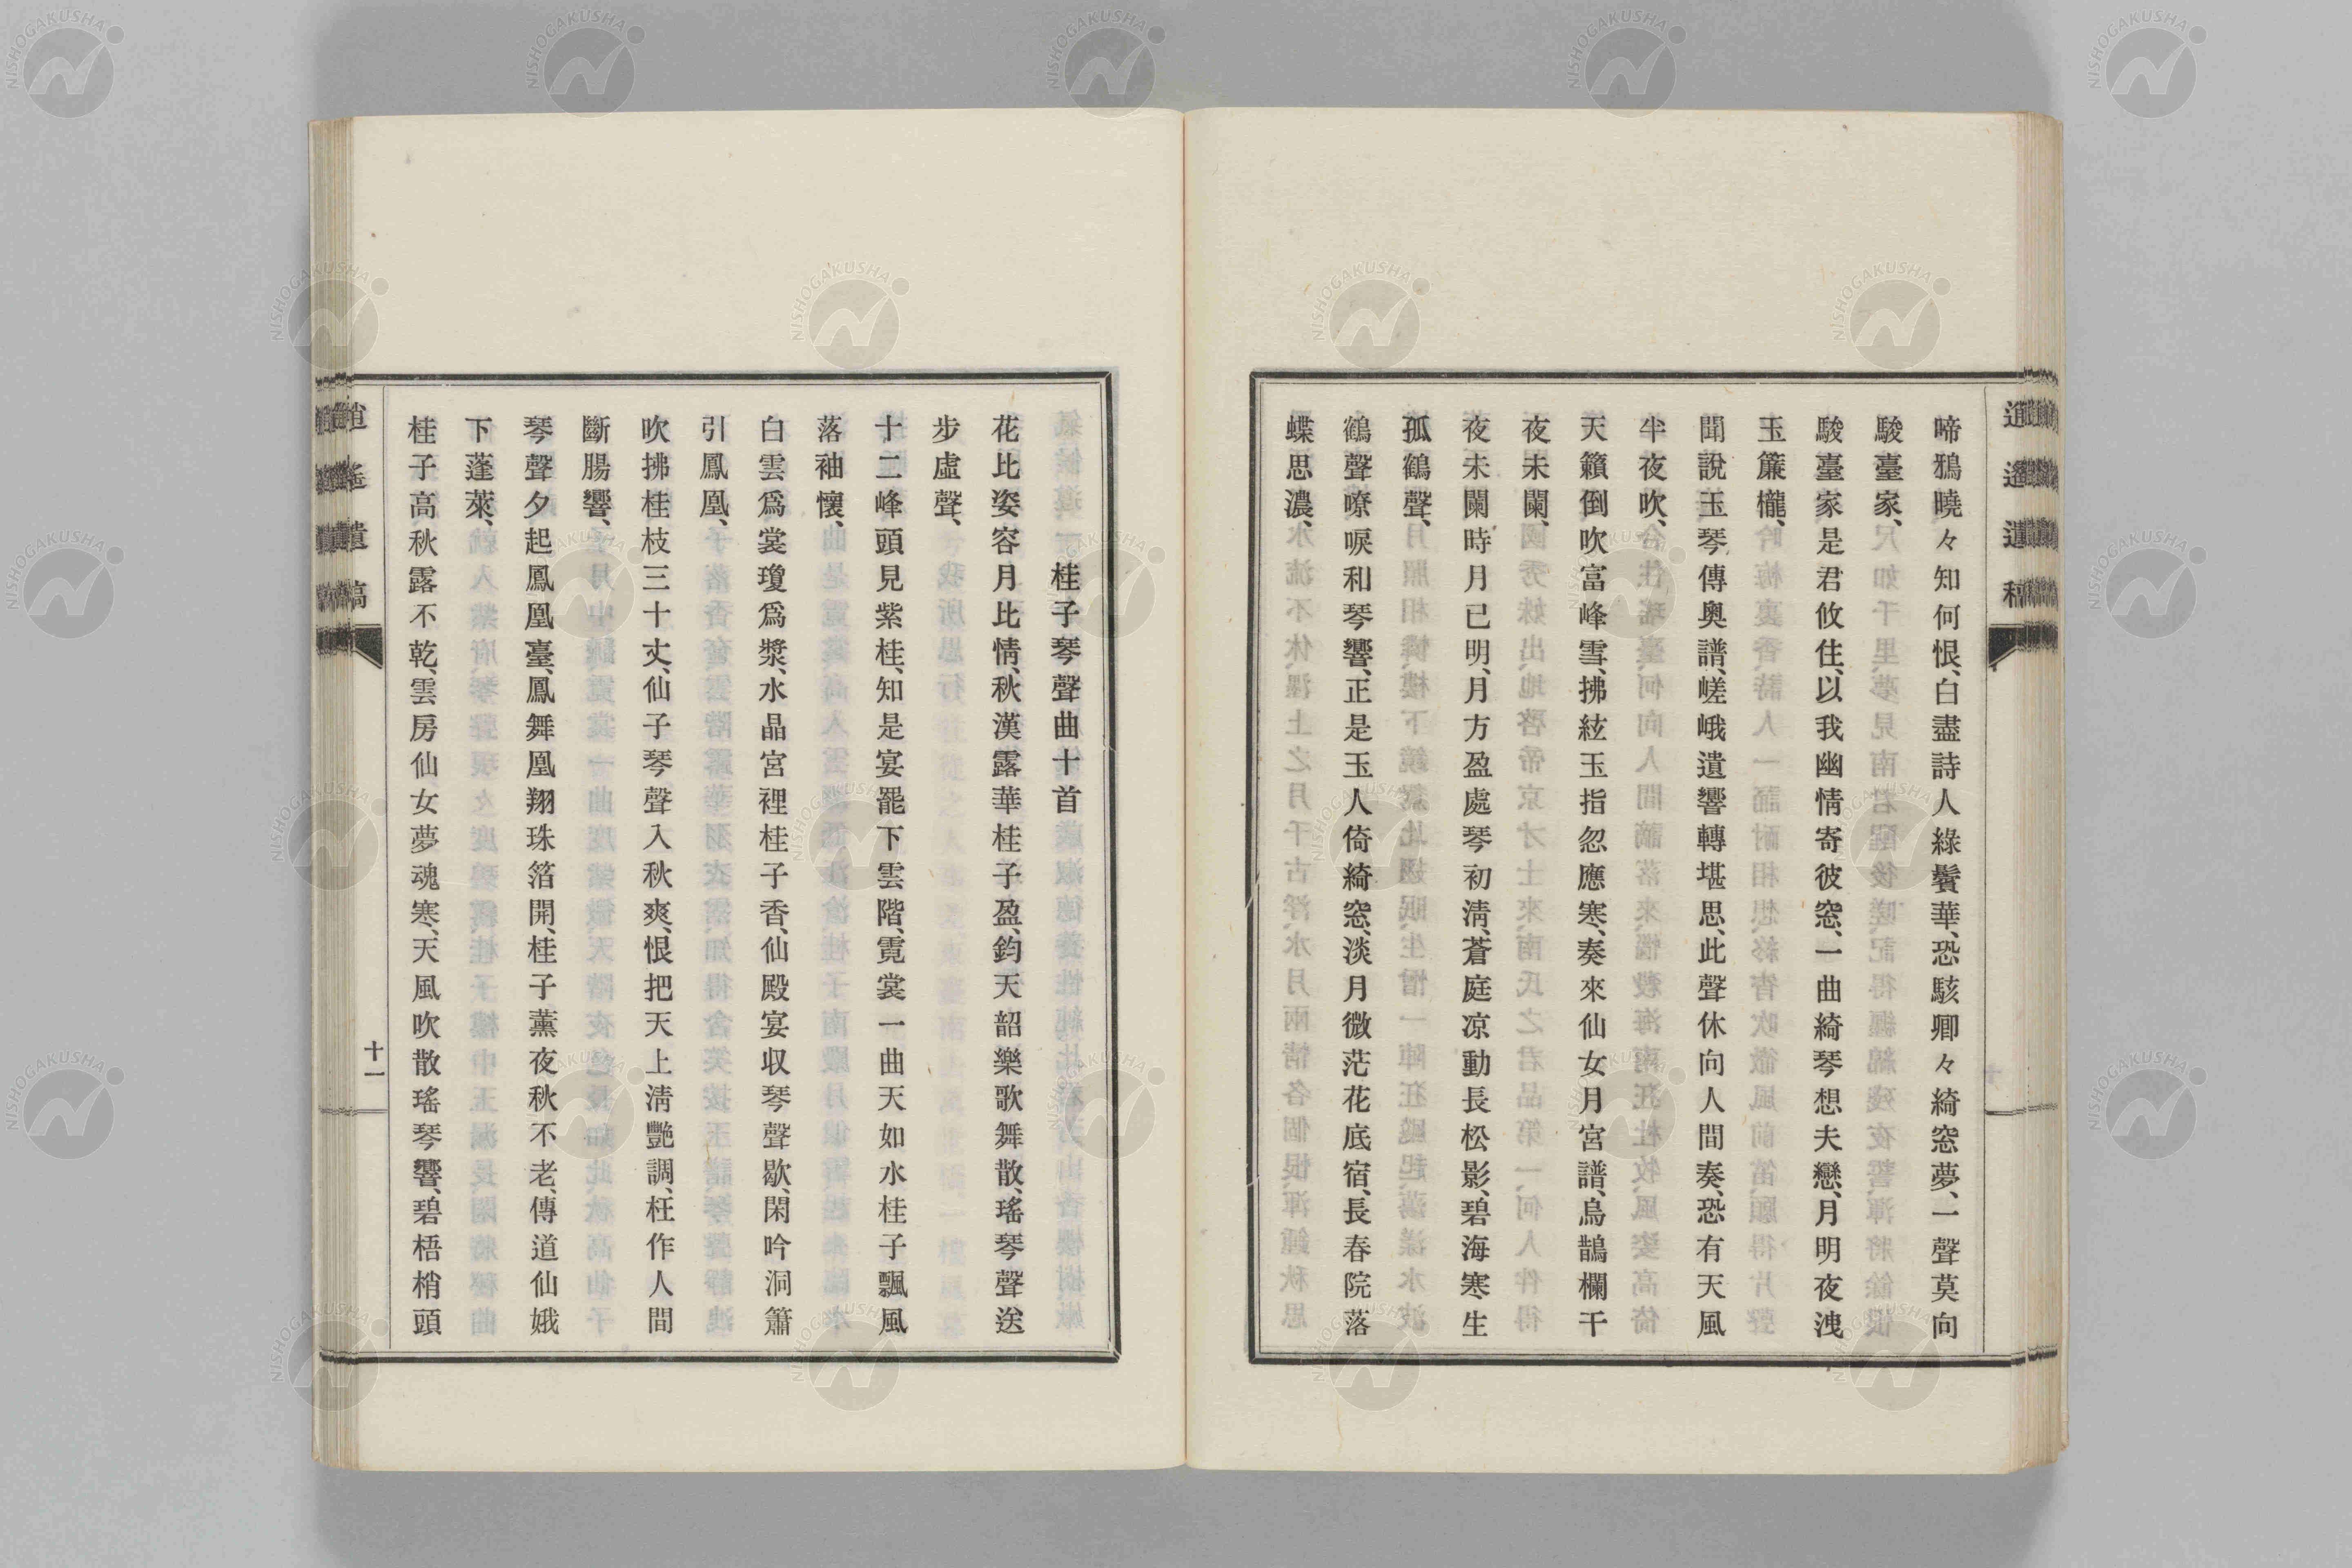 啼鴉曉々知何恨、白盡詩人綠鬢華、恐駭卿々綺窓夢、一聲莫向
駿臺家、
駿臺家是君攸住、以我幽情寄彼窓、一曲綺琴想夫戀、月明夜洩
玉簾櫳、
聞說玉琴傳奧譜、嵯峨遺響轉堪思、此聲休向人間奏、恐有天風
半夜吹、
天籟倒吹富峰雪、拂絃玉指忽應寒、奏來仙女月宮譜、烏鵲欄干
夜未闌、
夜未闌時月已明、月方盈處琴初淸、蒼庭凉動長松影、碧海寒生
孤鶴聲、
鶴聲嘹唳和琴響、正是玉人倚綺窓、淡月微茫花底宿、長春院落
蝶思濃、
桂子琴聲曲十首
花比姿容月比情、秋漢露華桂子盈、鈞天韶樂歌舞散、瑤琴聲送
步虛聲、
十二峰頭見紫桂、知是宴罷下雲階、霓裳一曲天如水桂子飄風
落袖懷、
白雲爲裳瓊爲漿、水晶宮裡桂子香、仙殿宴収琴聲歇、閑吟洞簫
引鳳凰、
吹拂桂枝三十丈、仙子琴聲入秋爽、恨把天上淸艷調、枉作人間
斷腸響、
琴聲夕起鳳凰臺、鳳舞凰翔珠箔開、桂子薰夜秋不老、傳道仙娥
下蓬萊、
桂子高秋露不乾、雲房仙女夢魂寒、天風吹散瑤琴響、碧梧梢頭
十一
NISHOGAKUSHA